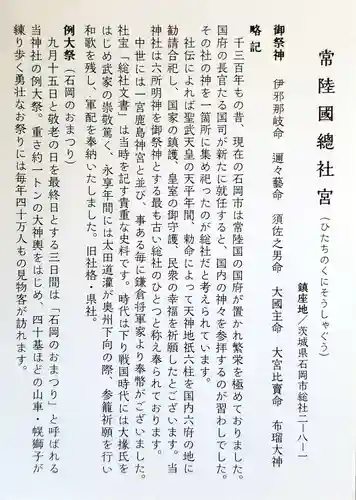 常陸國總社宮（ひたちのくにそうしゃぐう）
鎮座地／茨城県石岡市総社二‐八‐一
御祭神　伊邪那岐命　邇々藝命　須佐之男命　大國主命　大宮比賣命　布瑠大神
略記
　千三百年もの昔、現在の石岡市は常陸国の国府が置かれ繁栄を極めておりました。
国府の長官たる国司が新たに就任すると、国内の神々を参拝するのが習わしでした。
その社の神を一箇所に集め祀ったのが総社だと考えられています。
　社伝によれば聖武天皇の天平年間、勅命によって天神地祇六柱を国内六府の地に
勧請合祀し、国家の鎮護、皇室の御守護、民衆の幸福を祈願したとございます。当
神社は六所明神を御祭神とする最も古い総社のひとつと称え奉られております。
　中世には一宮鹿島神宮と並び、事ある毎に鎌倉将軍家より奉幣がございました。
社宝「総社文書」は当時を記す貴重な史料です。時代は下り戦国時代には大掾氏を
はじめ武家の崇敬篤く、永享年間には太田道灌が奥州下向の際、参籠祈願を行い
和歌を残し、軍配を奉納いたしました。旧社格・県社。
例大祭（石岡のおまつり）
　九月十五日と敬老の日を最終日とする三日間は「石岡のおまつり」と呼ばれる
当神社の例大祭。重さ約一トンの大神輿をはじめ、四十基ほどの山車・幌獅子が
練り歩く勇壮なお祭りには毎年四十万人もの見物客が訪れます。